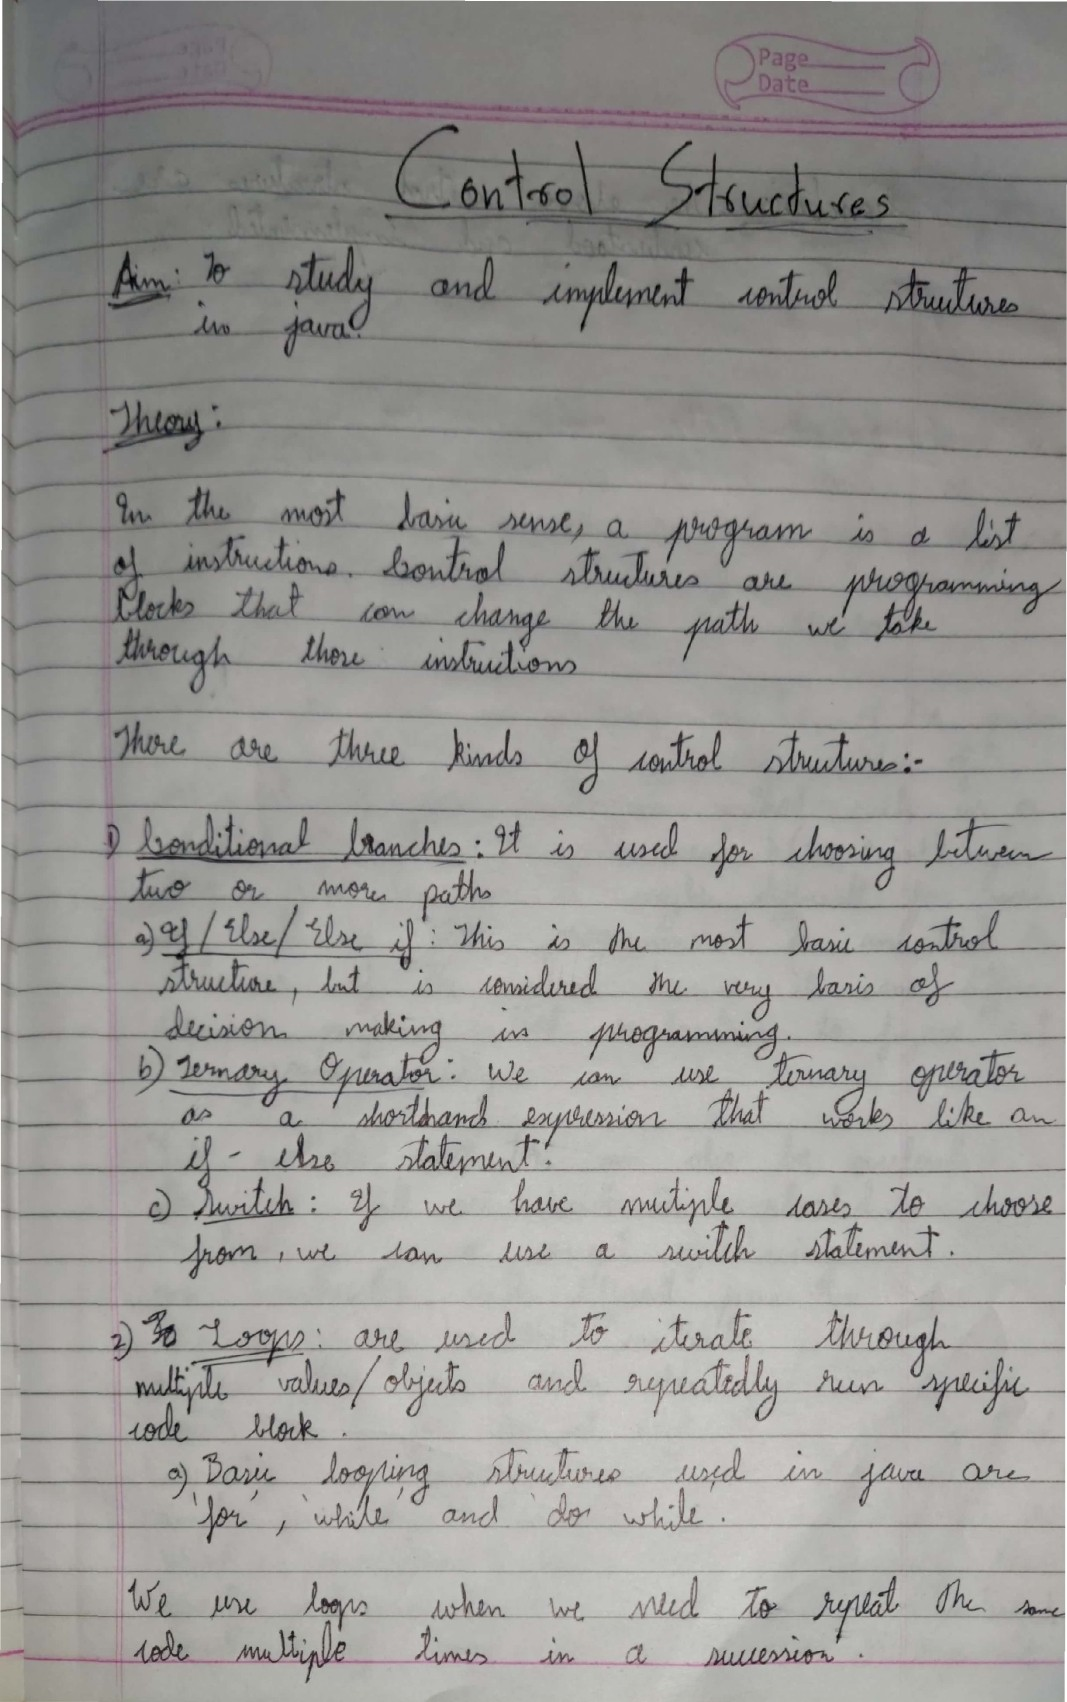 Page
Date
Control Structures
Aim: To study and implement control structures
in java.
Theory:
In the most basic sense, a program is a list
of instructions. Control structures are programming
blocks that can change the path we take
through those instructions
There are three kinds of control structures:-
1) Conditional branches: It is used for choosing between
two or more paths
a) If/Else/Else if: This is the most basic control
structure, but is considered the very basis of
decision making in programming.
b) Ternary Operator: We can use ternary operator
as a shorthand expression that works like an
if-else statement.
c) Switch: If we have multiple cases to choose
from, we can use a switch statement.
2) Loops: are used to iterate through
multiple values/objects and repeatedly run specific
code block.
a) Basic looping structures used in java are
'for', 'while' and 'do while.
We use loops when we need to repeat the same
code multiple times in a succession.